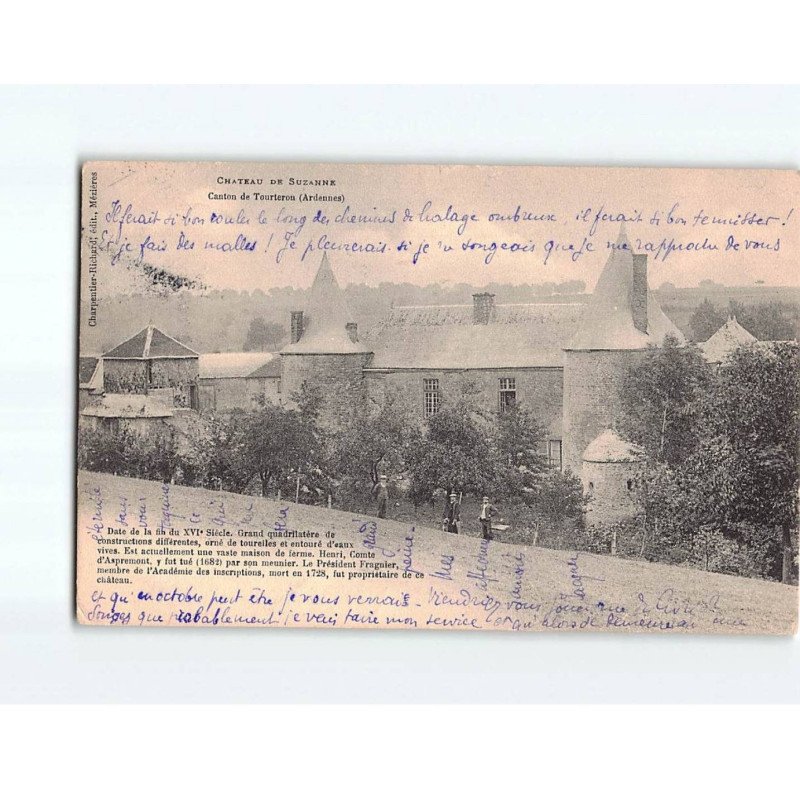 CHATEAU DE SUZANNE
Canton de Tourteron (Ardennes)
Charpentier-Richard, édit., Mézières
Il ferait si bon rouler le long des chemins de halage ombreux, il ferait si bon tennisser !
Et je fais des malles ! Je pleurerais si je ne songeais que je me rapproche de vous
Date de la fin du XVIe Siècle. Grand quadrilatère de
constructions différentes, orné de tourelles et entouré d'eaux
vives. Est actuellement une vaste maison de ferme. Henri, Comte
d'Aspremont, y fut tué (1682) par son meunier. Le Président Fragnier,
membre de l'Académie des inscriptions, mort en 1728, fut propriétaire de ce
château.
et qu'en octobre peut être je vous verrais. Viendrez vous
Songez que probablement je vais faire mon service et qu'alors je demeurerai une
éternité sans vous
ce qui